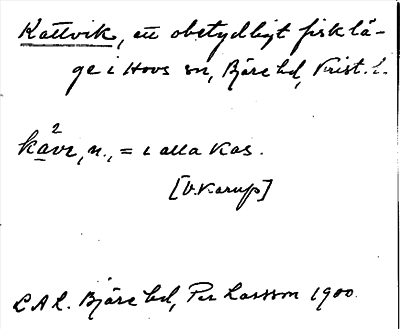 Kattvik, ett obetydligt fisklä-
ge i Hovs sn, Bjäre hd, Krist. l.
2
kåvı, n., = i alla Kas.
[V. Karup]
LAL. Bjäre hd, Per Larsson 1900.